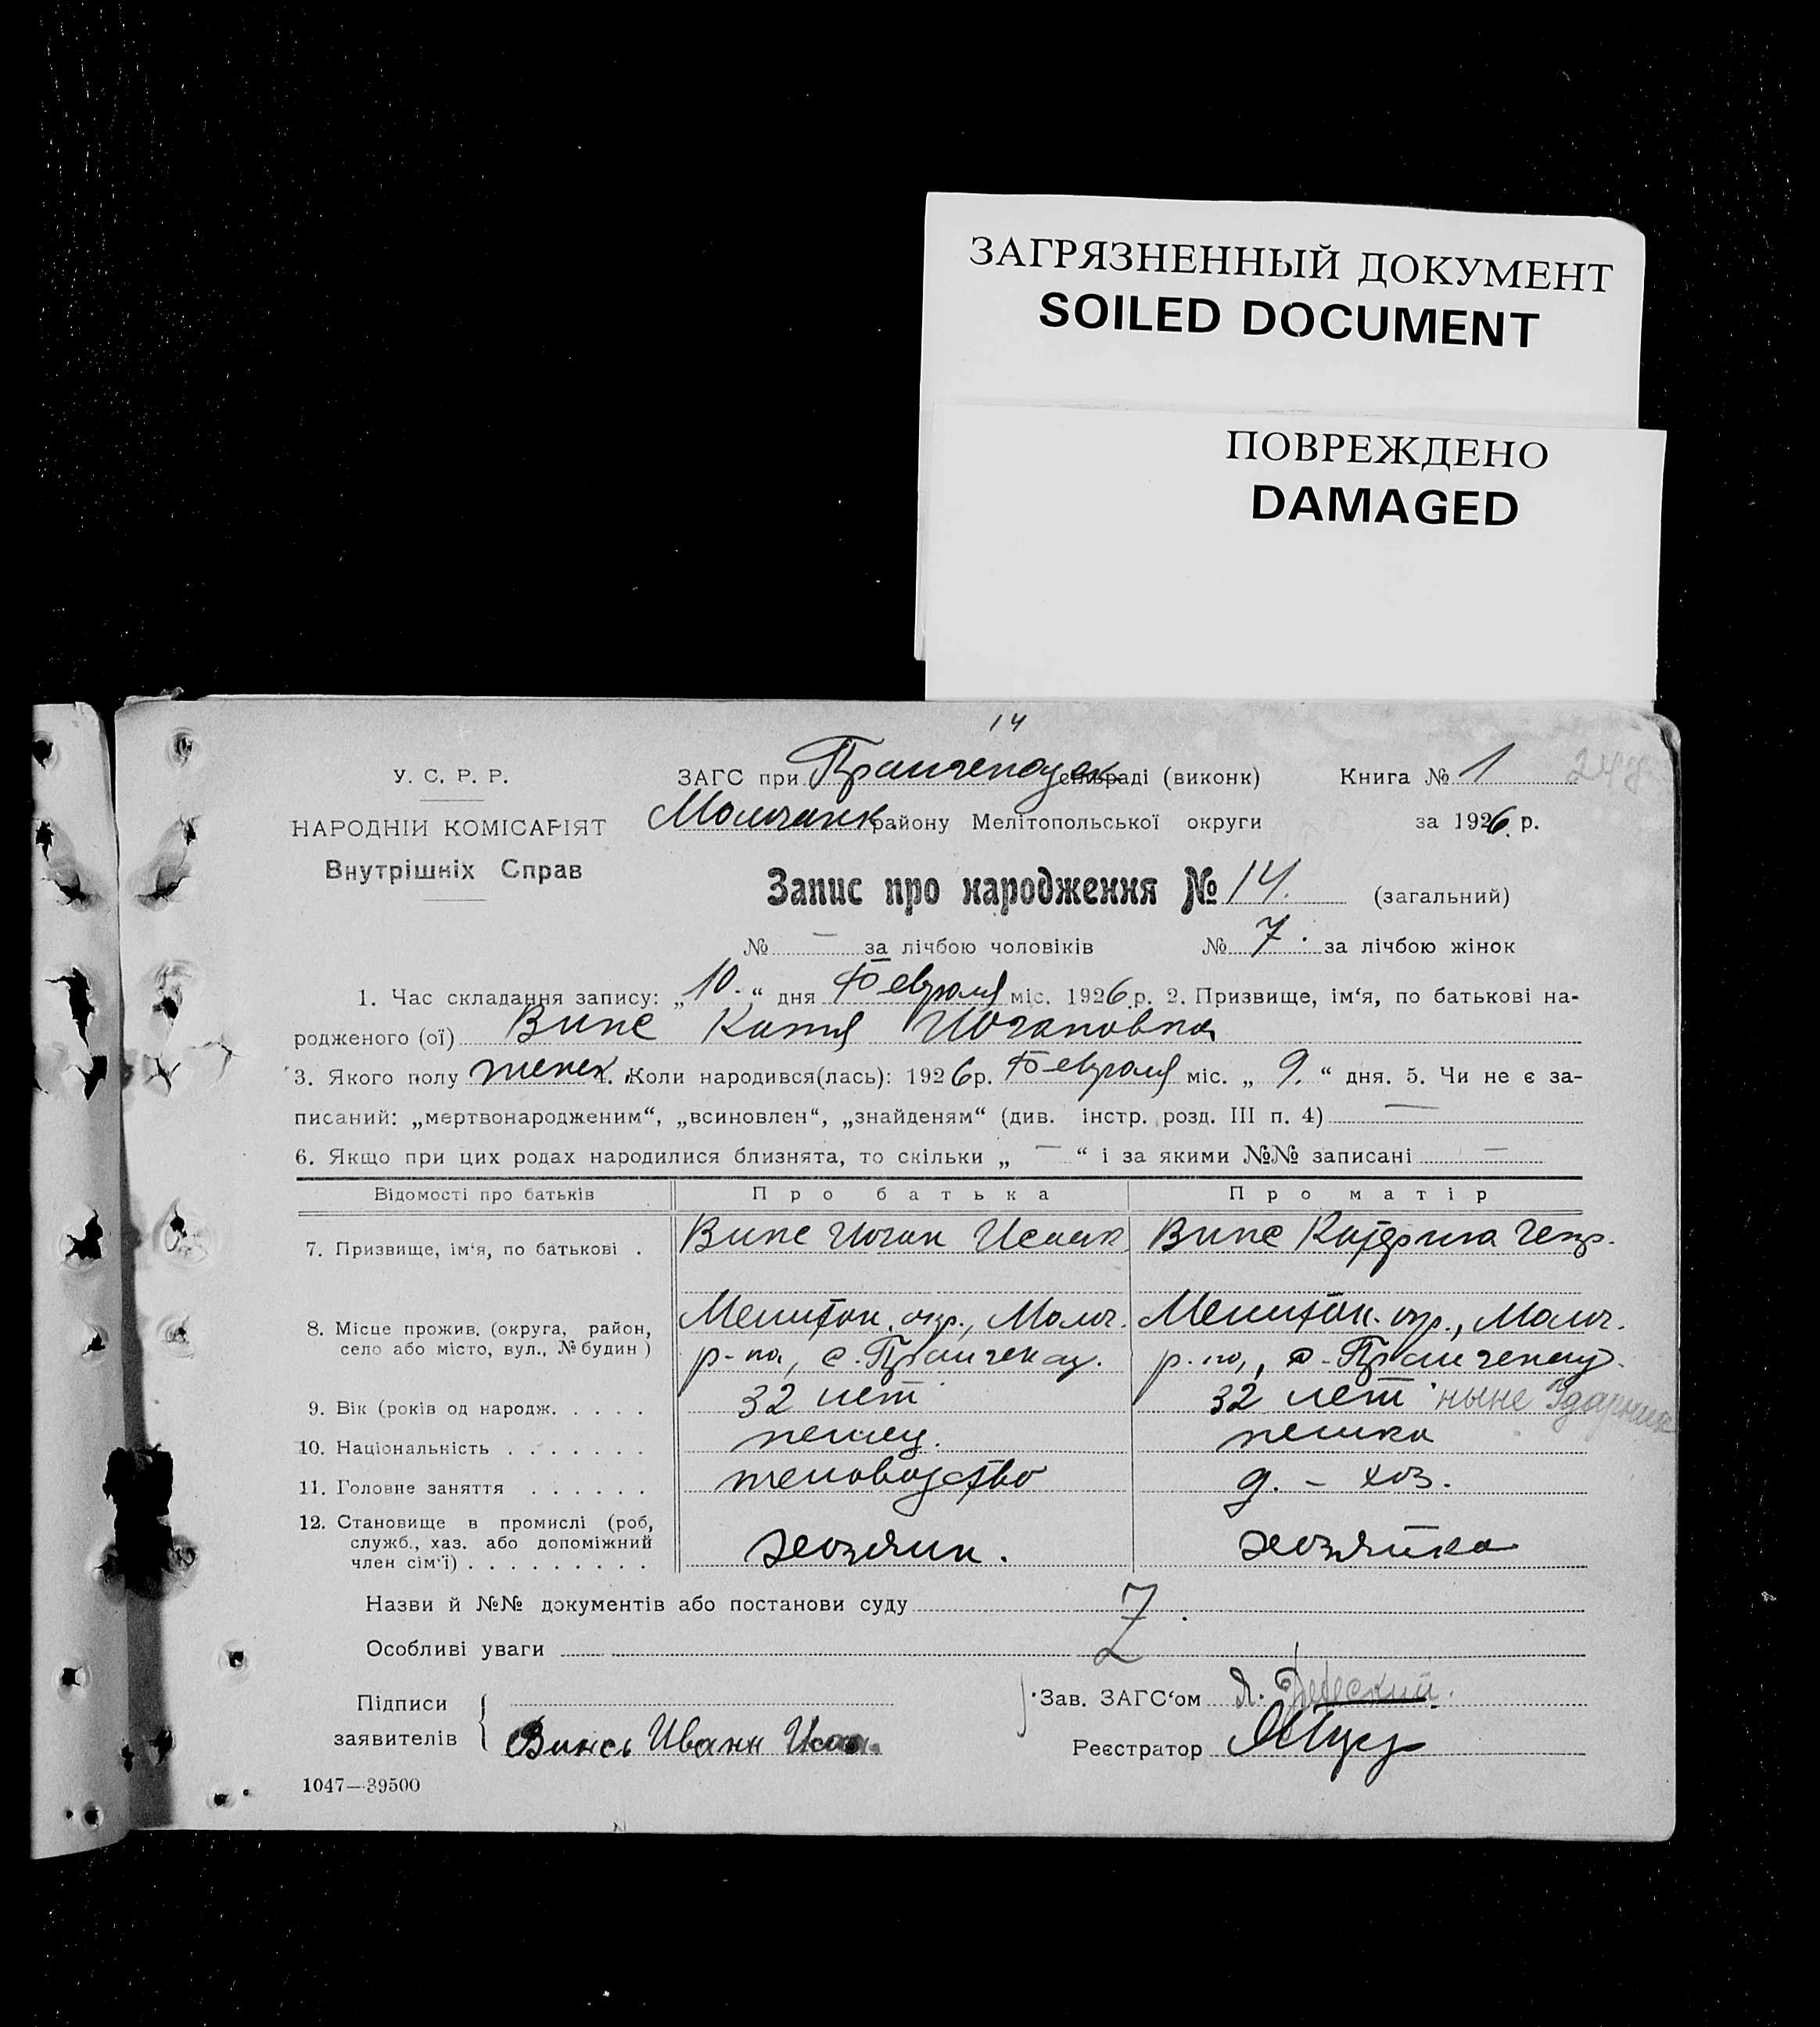 ЗАГРЯЗНЕННЫЙ ДОКУМЕНТ
SOILED DOCUMENT
ПОВРЕЖДЕНО
DAMAGED
14
У. С. Р. Р.
НАРОДНІЙ КОМІСАРІЯТ
Внутрішніх Справ
ЗАГС при Прангенауск сільраді (виконк) Книга № 1
Молочанск району Мелітопольської округи за 1926 р.
Запис про народження № 14. (загальний)
№ — за лічбою чоловіків № 7. за лічбою жінок
1. Час складання запису: „10.“ дня Февраля міс. 1926 р. 2. Призвище, ім‘я, по батькові на-
родженого (ої) Винс Катя Иогановна
3. Якого полу женск. 4. Коли народився(лась): 1926 р. Февраля міс. „9.“ дня. 5. Чи не є за-
писаний: „мертвонародженим“, „всиновлен“, „знайденям“ (див. інстр. розд. III п. 4) —
6. Якщо при цих родах народилися близнята, то скільки „ — “ і за якими №№ записані —
Відомості про батьків Про батька Про матір
7. Призвище, ім‘я, по батькові . Винс Иоган Исаак Винс Катерина Генр.
8. Місце прожив. (округа, район, село або місто, вул., № будин) Мелитоп. окр., Молоч. р-на, с. Прангенау. Мелитоп. окр., Молоч. р-на, с. Прангенау.
9. Вік (років од народж. . . . . 32 лет 32 лет ныне Ударник
10. Національність . . . . . . . немец. немка
11. Головне заняття . . . . . . д. - хоз.
12. Становище в промислі (роб, служб., хаз. або допоміжний член сім‘ї) . . . . . . . . . хозяин. хозяйка
Назви й №№ документів або постанови суду
Особливі уваги
Підписи заявителів Винсъ Иванн
Зав. ЗАГС‘ом
Реєстратор
1047—39500